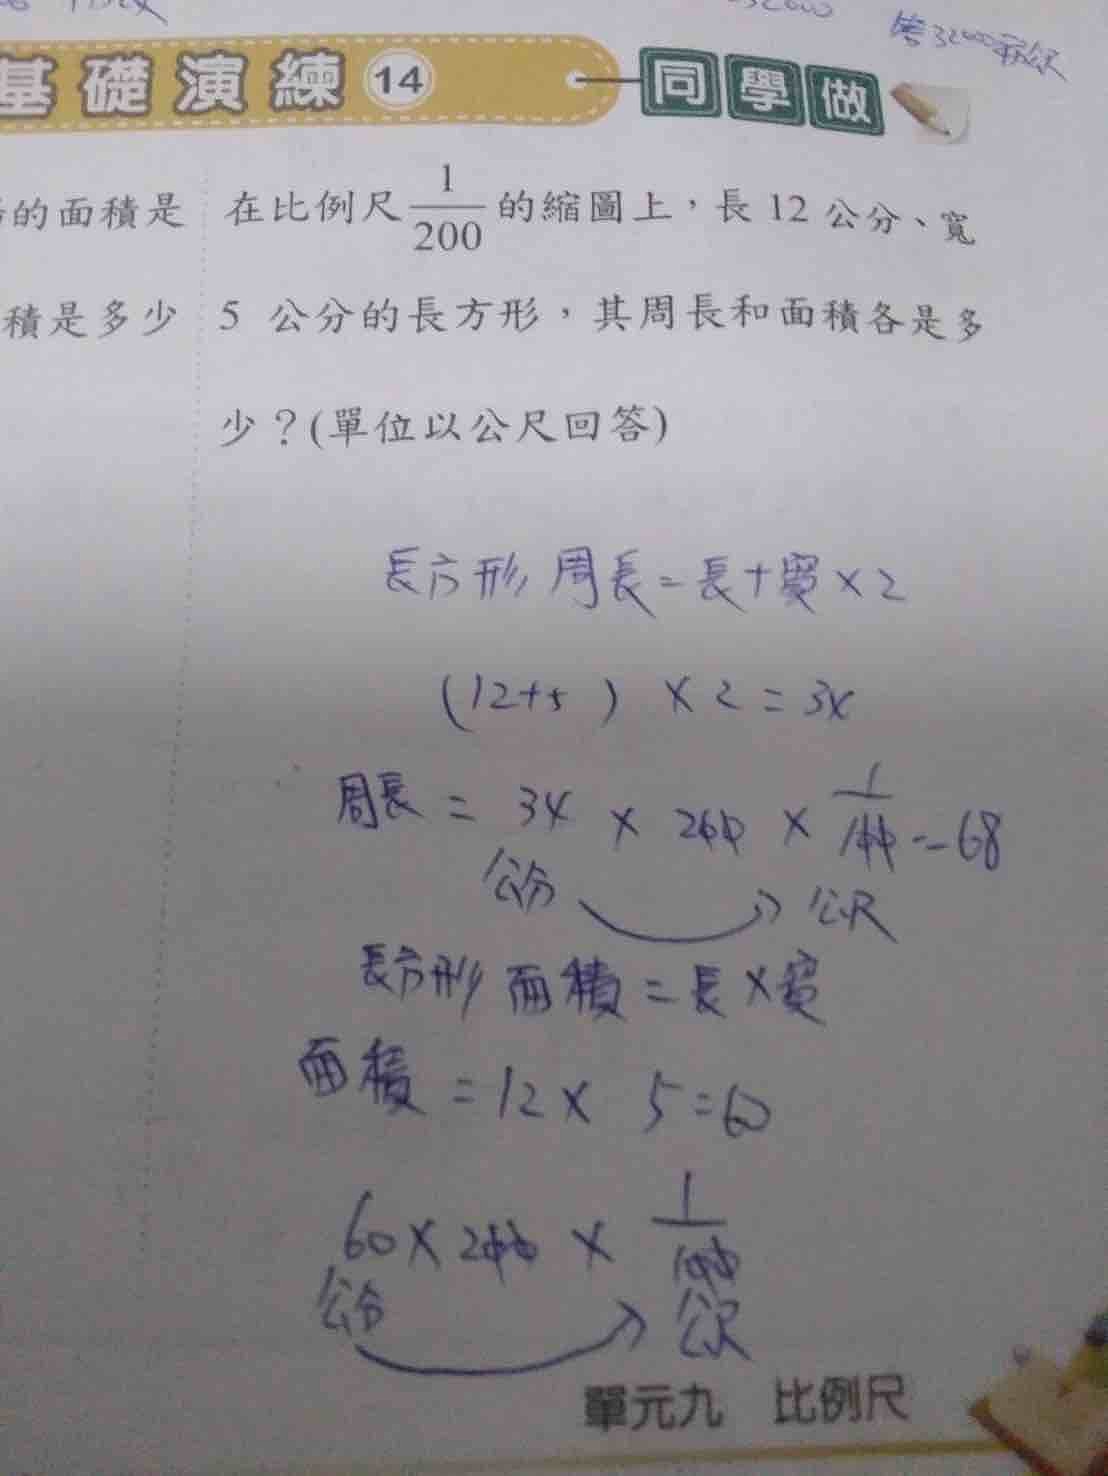 答32000平方公尺
基礎演練 14 同學做
的面積是
積是多少
在比例尺 1/200 的縮圖上，長 12 公分、寬
5 公分的長方形，其周長和面積各是多
少？(單位以公尺回答)
長方形周長=長+寬×2
(12+5)×2=34
周長 = 34 × 200 × 1/100 = 68
公分 公尺
長方形面積=長×寬
面積 = 12× 5=60
60×200 × 1/100
公分 公尺
單元九 比例尺